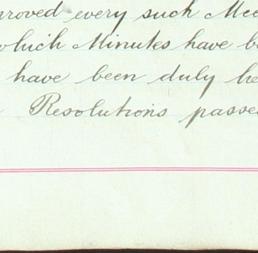 proved every such Mee
which Minutes have be
have been duly he
Resolutions passe